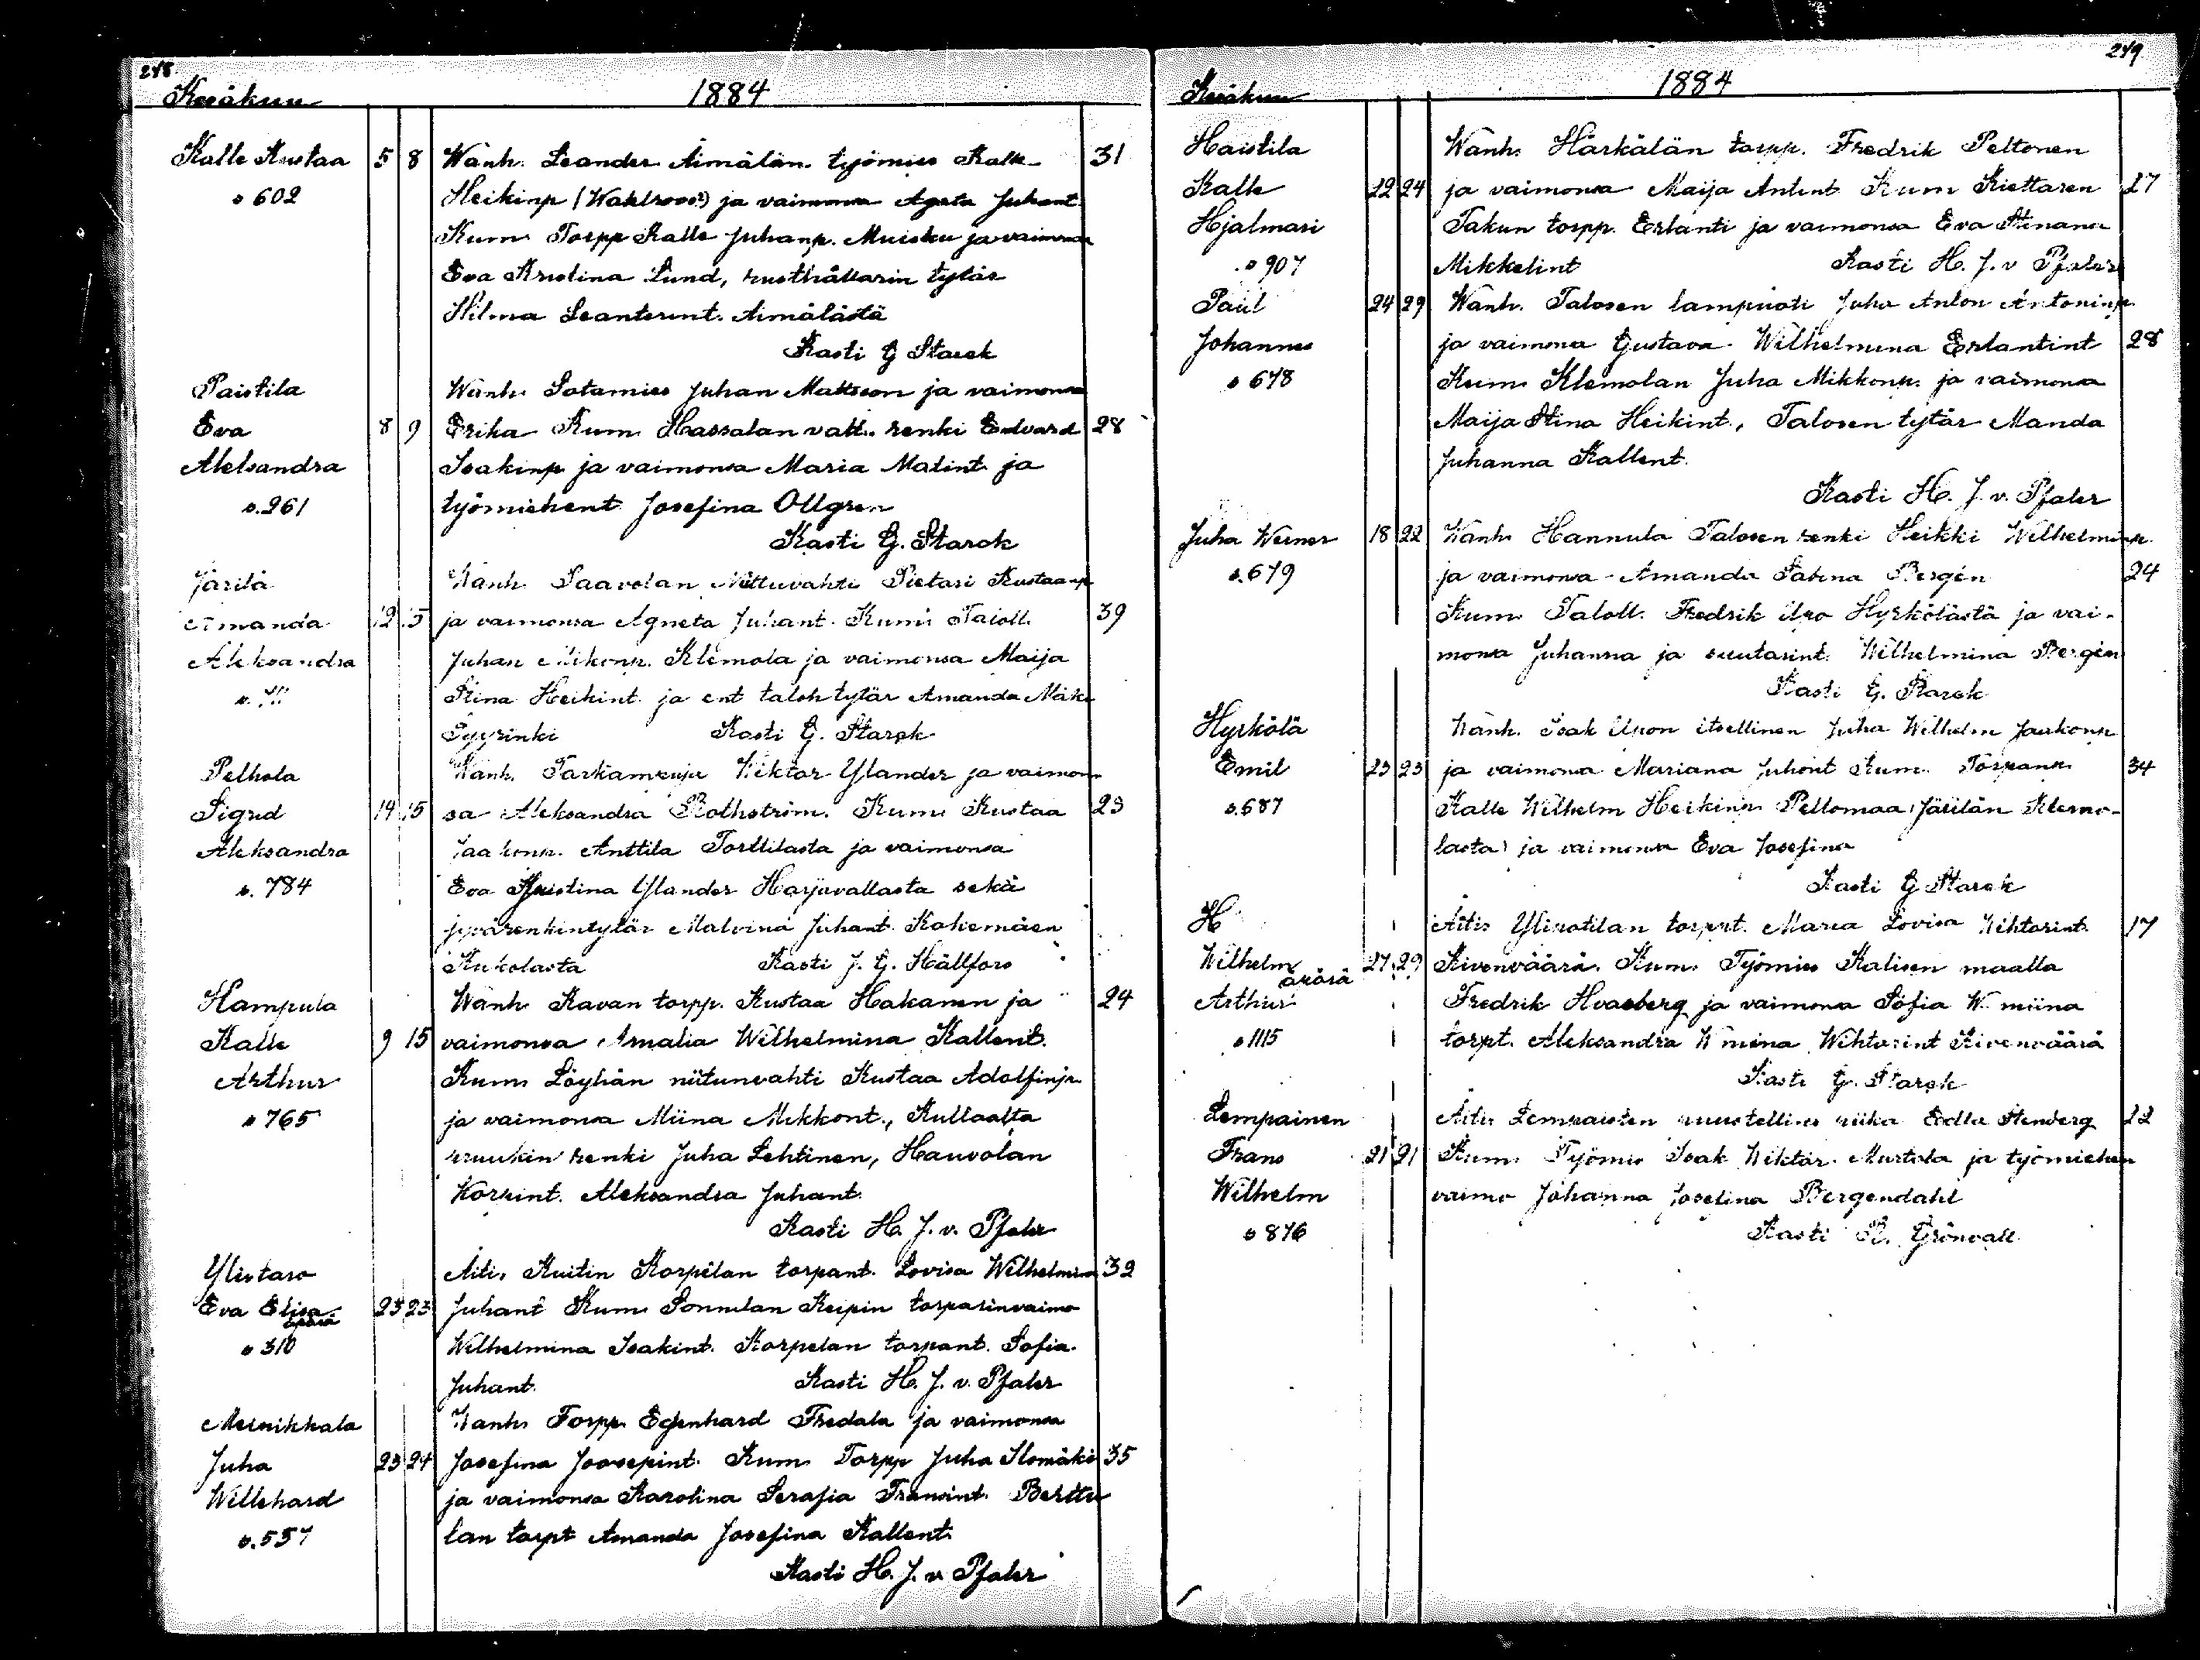 248
Kesäkuu 1884
Kalle Kustaa 5 8 Wanh. Leander Äimälän työmies Kalle 31
s 602 Heikinp (Wahlroos?) ja vaimonsa Agata Juhant.
Kum. Torpp Kalle Juhanp. Muisku ja vaimonsa
Eva Kristina Lund, rusthållarin tytär
Hilma Leanterint. Äimälästä
Kasti G Starck
Paistila Wanh. Sotamies Juhan Mattsson ja vaimonsa
Eva 8 9 Erika Kum. Hassalan vall. renki Edvard 28
Aleksandra Isakinp ja vaimonsa Maria Matint. ja
s. 261 työmiehent. Josefina Ollgren
Kasti G. Starck
Järilä Wanh. Saavolan Niittuvahti Pietari Kustaanp
Amanda 12 15 ja vaimonsa Agneta Juhant. Kum. Taloll. 39
Aleksandra Juhan Mikonp. Klemola ja vaimonsa Maija
Stina Heikint. ja ent taloh tytär Amanda Mäki
Pyyrinki Kasti G. Starck
Pelhola Wanh. Wiktor Ylander ja vaimon
Sigrid 14 15 sa Aleksandra Rothström. Kum. Kustaa 23
Aleksandra Jaakonp. Anttila Torttilasta ja vaimonsa
s. 784 Eva Kristina Ylander Harjavallasta sekä
jyvärenkintytär Malvina Juhant. Kokemäen
Kukolasta Kasti J. G. Hällfors
Hampula Wanh Kavan torpp. Kustaa Hakanen ja 24
Kalle 9 15 vaimonsa Amalia Wilhelmina Kallent.
Arthur Kum. Löyhän niitunvahti Kustaa Adolfinp.
s 765 ja vaimonsa Miina Mikkont., Kullaalta
ruukin renki Juha Lehtinen, Hauvolan
Korpint. Aleksandra Juhant.
Kasti H. J. v. Pfaler
Ylistaro Äiti. Kuitin Korpelan torpant. Lovisa Wilhelmina 32
Eva Elisa äpärä 23 23 Juhant Kum. Sonnilan Keipin torparinvaimo
s 310 Wilhelmina Isakint. Korpelan torpant. Sofia
Juhant. Kasti H. J. v. Pfaler
Merikkala Wanh. Torpp. Egenhard Fredala ja vaimonsa
Juha 23 24 Josefina Joosepint. Kum. Torpp Juha Ilomäki 35
Willehard ja vaimonsa Karolina Serafia Fransint. Berttu
s. 557 lan torpt Amanda Josefina Kallent.
Kasti H. J. v. Pfaler
249
Kesäkuu 1884
Haistila Wanh. Härkälän torpp. Fredrik Peltonen
Kalle 22 24 ja vaimonsa Maija Antint. Kum Kiettaren 27
Hjalmari Takun torpp. Erlanti ja vaimonsa Eva Stenana
s 907 Mikkelint Kasti H. J. v Pfaler
Paul 24 29 Wanh. Talosen lampuoti Juho Anton Antoninp.
Johannes ja vaimonsa Gustava Wilhelmina Erlantint 28
s 678 Kum. Klemolan Juha Mikkonp. ja vaimonsa
Maija Stina Heikint., Talosen tytär Manda
Juhanna Kallent.
Kasti H. J. v. Pfaler
Juha Werner 18 22 Wanh. Hannula Talosen renki Heikki Wilhelminp.
s. 679 ja vaimonsa Amanda Sabina Bergén 24
Kum. Taloll. Fredrik Uro Hyrkölästä ja vai-
monsa Juhanna ja suutarint. Wilhelmina Bergén
Kasti G. Starck
Hyrkölä Wanh. Isak Uron itsellinen Juha Wilhelm Jaakonp
Emil 23 23 ja vaimonsa Mariana Juhont Kum. Torpanp. 34
s. 687 Kalle Wilhelm Heikinp. Peltomaa (Järilän Klemo-
lasta) ja vaimonsa Eva Josefina
Kasti G Starck
H Äiti. Ylisotilan torpt. Maria Lovisa Wihtorint. 17
Wilhelm äpärä 27 29 Kivenväärä. Kum. Työmies Kalisen maalla
Arthur Fredrik Hvasberg ja vaimonsa Sofia W. miina
s 1115 torpt. Aleksandra W miina Wihtorint Kivenväärä
Kasti G. Starck
Lempainen Äiti. Lempaisten piika Edla Stenberg 22
Frans 21 21 Kum. Työmies Isak Wiktor Murtola ja työmiehen
Wilhelm vaimo Johanna Josefina Bergendahl
s 876 Kasti R. Grönvall